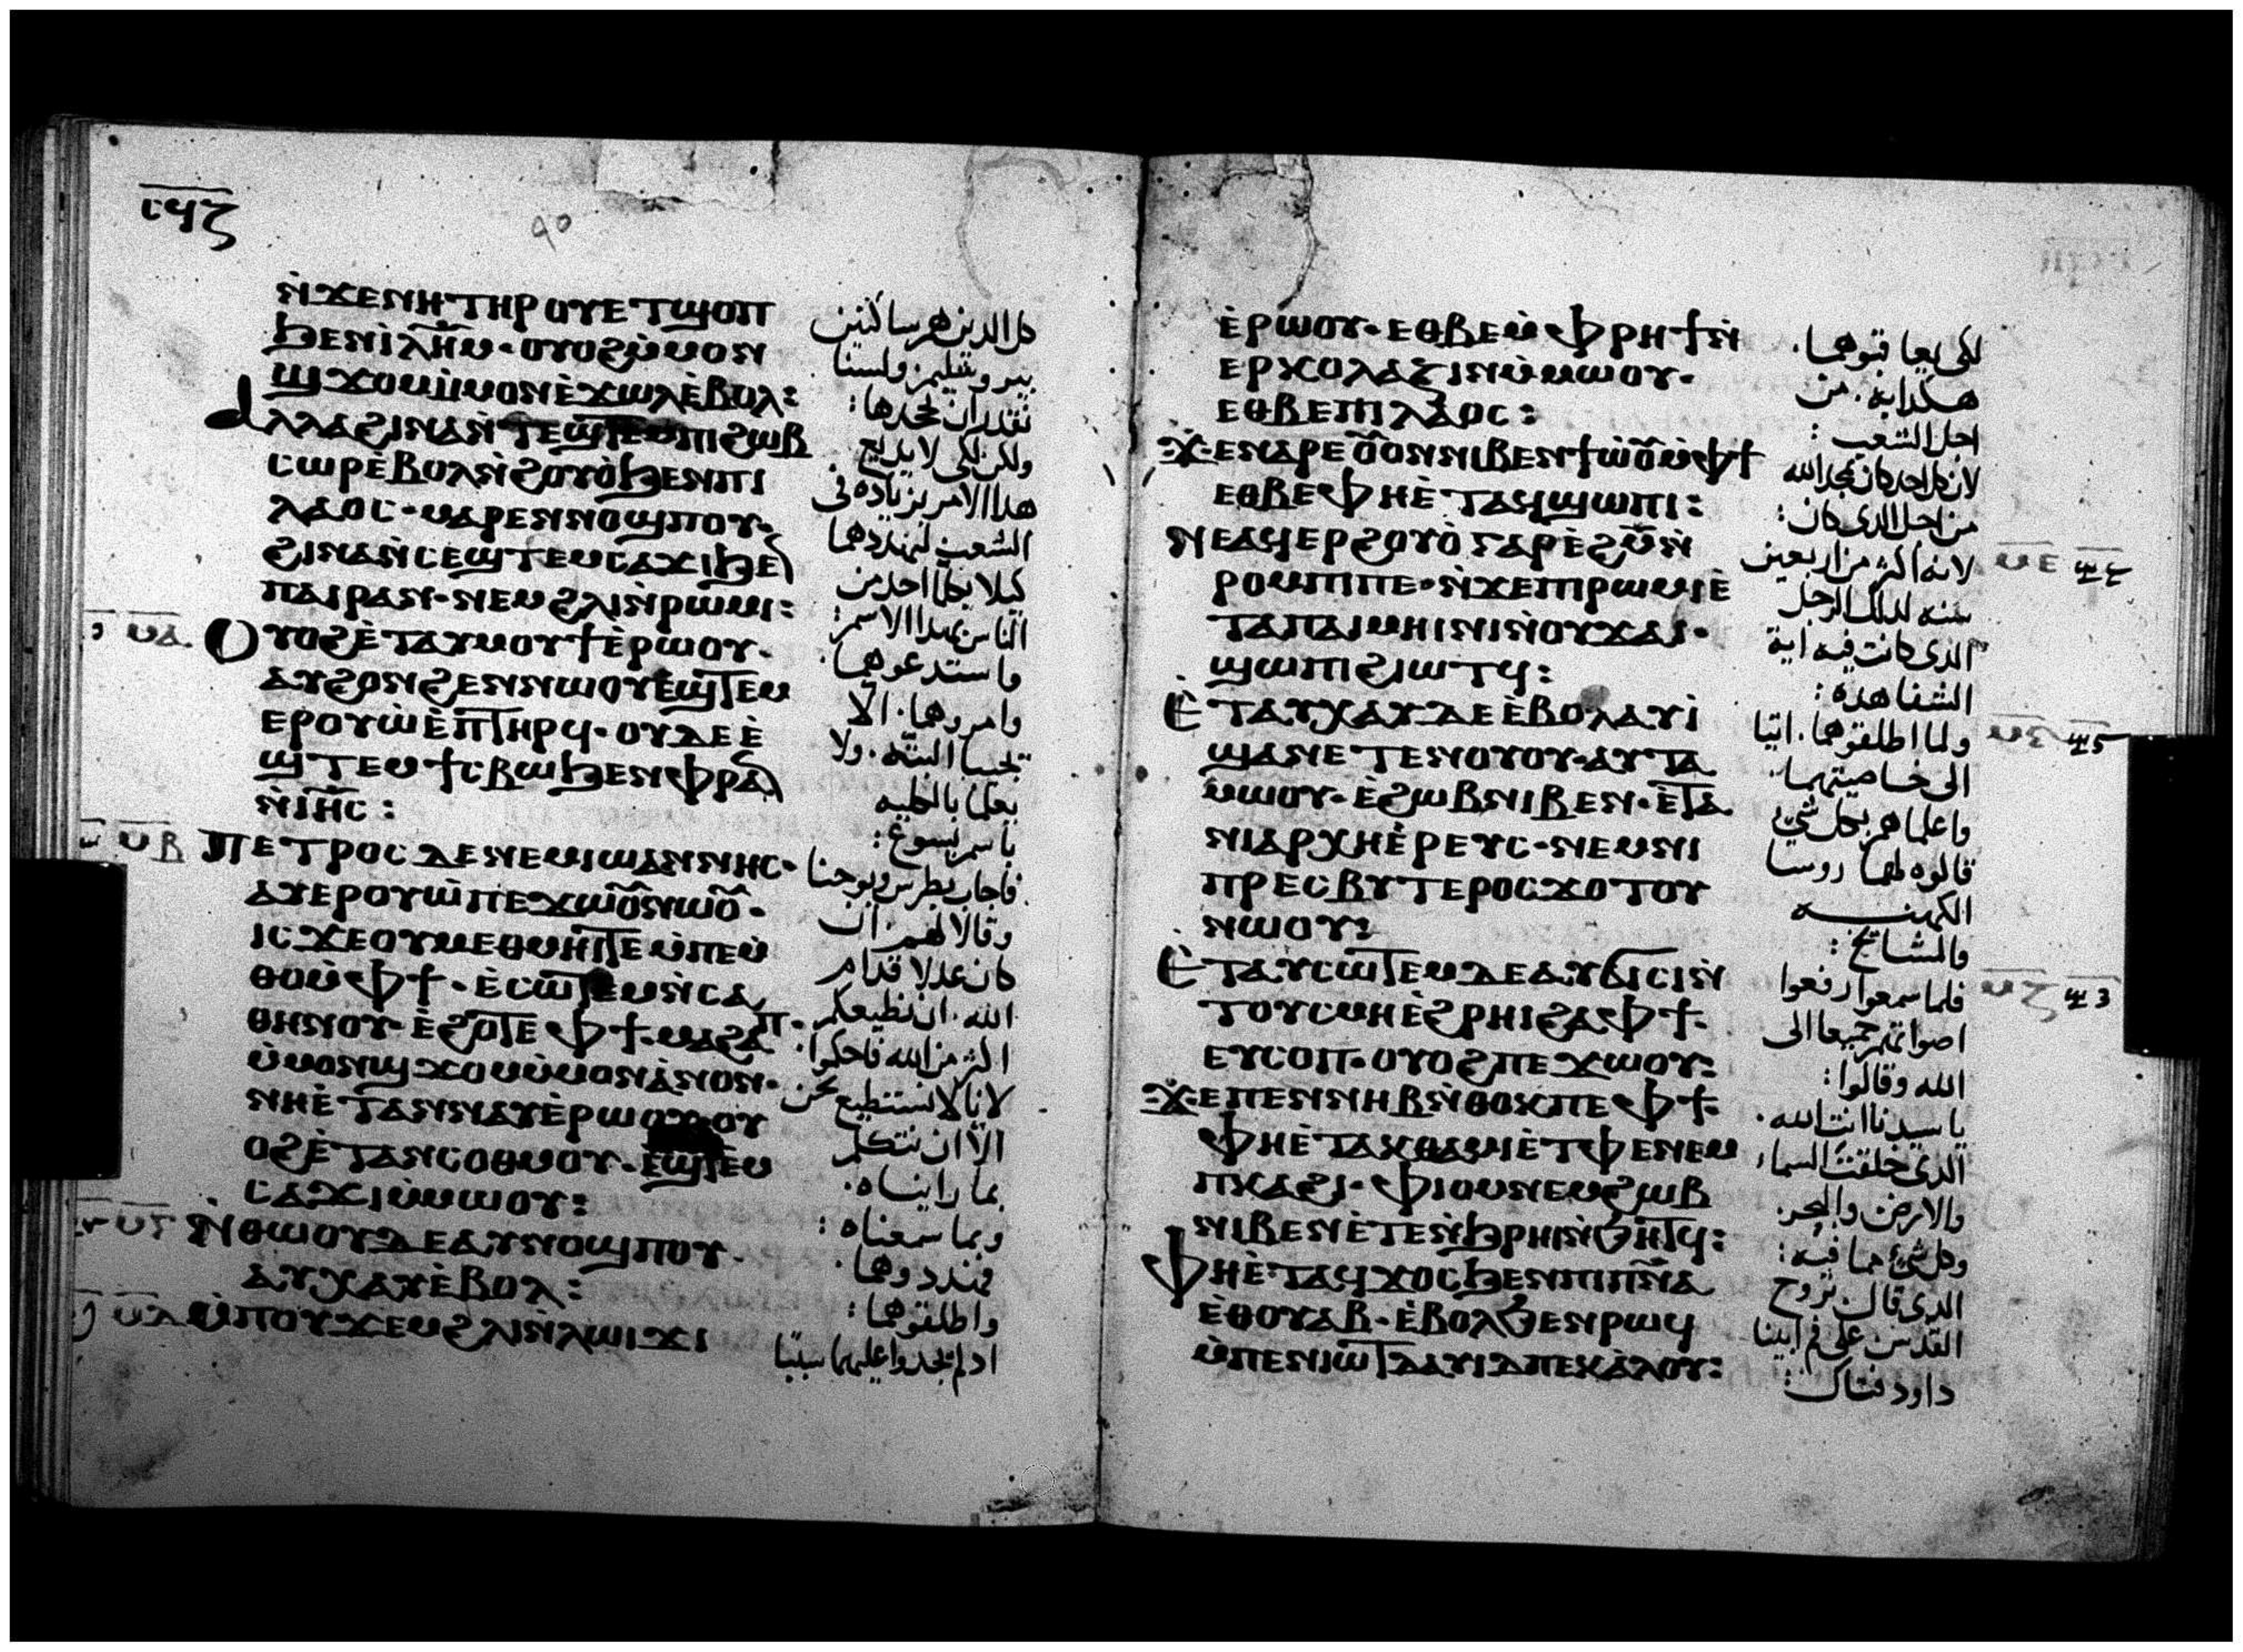 ⲣϥⲍ
ⲛ̀ϫⲉⲛⲏⲧⲏⲣⲟⲩⲉⲧϣⲟⲡ
ϧⲉⲛⲓ̀ⲗ̅ⲏ̅ⲙ̅· ⲟⲩⲟϩⲙ̀ⲙⲟⲛ
ϣϫⲟⲙⲙ̀ⲙⲟⲛⲉ̀ϫⲱⲗⲉ̀ⲃⲟⲗ:
ⲁⲗⲗⲁϩⲓⲛⲁⲛ̀ⲧⲉϣⲧⲉⲙⲡⲓϩⲱⲃ
ⲥⲱⲣⲉ̀ⲃⲟⲗⲛ̀ϩⲟⲩⲟ̀ϧⲉⲛⲡⲓ
ⲗⲁⲟⲥ· ⲙⲁⲣⲉⲛⲛⲟϣⲡⲟⲩ·
ϩⲓⲛⲁⲛ̀ⲥⲉϣⲧⲉⲙⲥⲁϫⲓϧⲉ
ⲡⲁⲓⲣⲁⲛ· ⲛⲉⲙϩⲗⲓⲛ̀ⲣⲱⲙⲓ:
ⲟⲩⲟϩⲉ̀ⲧⲁⲩⲙⲟⲩϯⲉ̀ⲣⲱⲟⲩ·
ⲁⲩϩⲟⲛϩⲉⲛⲛⲱⲟⲩⲉ̀ϣⲧⲉⲙ
ⲉⲣⲟⲩⲱ̀ⲉ̀ⲡⲧⲏⲣϥ· ⲟⲩⲇⲉⲉ̀
ϣⲧⲉⲙϯⲥⲃⲱϧⲉⲛⲫⲣⲁ
ⲛ̀ⲓⲏ̅ⲥ̅:
ⲡⲉⲧⲣⲟⲥⲇⲉⲛⲉⲙⲓⲱⲁⲛⲛⲏⲥ·
ⲁⲩⲉⲣⲟⲩⲱ̀ⲡⲉϫⲱⲟ̅ⲛⲱⲟ̅·
ⲓⲥϫⲉⲟⲩⲙⲉⲑⲙⲏⲓⲧⲉⲙ̀ⲡⲉⲙ̀
ⲑⲟⲙ̀ⲫϯ· ⲉ̀ⲥⲱⲧⲉⲙⲛ̀ⲥⲁ
ⲑⲏⲛⲟⲩ· ⲉ̀ϩⲟⲧⲉⲫϯ·ⲙⲁϩⲁⲡ·
ⲙ̀ⲙⲟⲛϣϫⲟⲙⲙ̀ⲙⲟⲛⲁ̀ⲛⲟⲛ·
ⲛⲏⲉ̀ⲧⲁⲛⲛⲁⲩⲉ̀ⲣⲱⲟⲩ·ⲟⲩ
ⲟϩⲉ̀ⲧⲁⲛⲥⲟⲑⲙⲟⲩ· ⲉ̀ϣⲧⲉⲙ
ⲥⲁϫⲓⲙ̀ⲙⲱⲟⲩ:
ⲛ̀ⲑⲱⲟⲩⲇⲉⲁⲩⲛⲟϣⲡⲟⲩ·
ⲁⲩⲭⲁⲩⲉ̀ⲃⲟⲗ:
ⲙ̀ⲡⲟⲩϫⲉⲙϩⲗⲓⲛ̀ⲗⲱⲓϫⲓ
كل الدين هم ساكنين
بيروشليم ولسنا
نقدر ان نجحدها:
ولكن لكي لا يديع
هدا الامر بزياده في
الشعب لنهددهما
كيلا يكلما احد من
الناس بهدا الاسم:
فاستدعوهما·
وامروهما· الا
يجيبا البته· ولا
يعلما بالكليه
باسم يسوع:
فاجاب بطرس ويوحنا
وقالا لهم· ان
كان عدلا قدام
الله· ان نطيعكم
اكثر من الله فاحكموا·
لاننا لا نستطيع نحن
الا ان نتكلم
بما رايناه·
وبما سمعناه:
فهددوهما·
واطلقوهما:
اد لم يجدوا عليهما سببًا
ⲉ̀ⲣⲱⲟⲩ· ⲉⲑⲃⲉⲙ̀ⲫⲣⲏϯⲛ̀
ⲉⲣⲕⲟⲗⲁⲍⲓⲛⲙ̀ⲙⲱⲟⲩ·
ⲉⲑⲃⲉⲡⲓⲗⲁⲟⲥ:
ϫⲉⲛⲁⲣⲉⲟ̅ⲟⲛⲛⲓⲃⲉⲛϯⲱ̀ⲟ̅ⲙ̀ⲫϯ
ⲉⲑⲃⲉⲫⲏⲉ̀ⲧⲁϥϣⲱⲡⲓ:
ⲛⲉⲁϥⲉⲣϩⲟⲩⲟ̀ⲅⲁⲣⲉ̀ϩ̅ⲙ̅ⲛ̀
ⲣⲟⲙⲡⲓⲡⲉ· ⲛ̀ϫⲉⲡⲓⲣⲱⲙⲓⲉ̀
ⲧⲁⲡⲁⲓⲙⲏⲓⲛⲓⲛ̀ⲟⲩϫⲁⲓ·
ϣⲱⲡⲓϩⲓⲱⲧϥ:
ⲉ̀ⲧⲁⲩⲭⲁⲩⲇⲉⲉ̀ⲃⲟⲗⲁⲩⲓ̀
ϣⲁⲛⲉⲧⲉⲛⲟⲩⲟⲩ·ⲁⲩⲧⲁ
ⲙⲱⲟⲩ· ⲉ̀ϩⲱⲃⲛⲓⲃⲉⲛ· ⲉ̀ⲧⲁ
ⲛⲓⲁⲣⲭⲏⲉ̀ⲣⲉⲩⲥ· ⲛⲉⲙⲛⲓ
ⲡⲣⲉⲥⲃⲩⲧⲉⲣⲟⲥϫⲟⲧⲟⲩ
ⲛⲱⲟⲩ:
ⲉ̀ⲧⲁⲩⲥⲱⲧⲉⲙⲇⲉⲁⲩϭⲓⲥⲓⲛ̀
ⲧⲟⲩⲥⲙⲏⲉ̀ϩⲣⲏⲓϩⲁⲫϯ·
ⲉⲩⲥⲟⲡ· ⲟⲩⲟϩⲡⲉϫⲱⲟⲩ:
ϫⲉⲡⲉⲛⲛⲏⲃⲛ̀ⲑⲟⲕⲡⲉⲫϯ·
ⲫⲏⲉ̀ⲧⲁⲕⲑⲁⲙⲓⲉ̀ⲧⲫⲉⲛⲉⲙ
ⲡⲕⲁϩⲓ· ⲫⲓⲟⲙⲛⲉⲙϩⲱⲃ
ⲛⲓⲃⲉⲛⲉ̀ⲧⲉⲛ̀ϧⲣⲏⲓⲛ̀ϧⲏⲧϥ:
ⲫⲏⲉ̀ⲧⲁϥϫⲟⲥϧⲉⲛⲡⲓⲡ̅ⲛ̅ⲁ
ⲉ̀ⲑⲟⲩⲁⲃ· ⲉ̀ⲃⲟⲗϧⲉⲛⲣⲱϥ
ⲙ̀ⲡⲉⲛⲓⲱⲧⲇⲁⲩⲓⲇⲡⲉⲕⲁ̀ⲗⲟⲩ:
لكي يعاقبوهما·
هكدا به· من
اجل الشعب:
لان كل احد كان يمجد الله
من اجل الدي كان:
لانه اكثر من اربعين
سنه لدلك الرجل
الدي كانت فيه اية
الشفا هده:
ولما اطلقوهما· اتيا
الى خاصيتهما·
واعلماهم بكل شي
قالوه لهما روسا
الكهنه
والمشايخ:
فلما سمعوا رفعوا
اصواتهم جميعا الى
الله وقالوا:
يا سيدنا انت الله·
الدي خلقت السماء
والارض والبحر·
وكل شيء مما فيه:
الدي قال بروح
القدس على فم ابينا
داود فتاك: